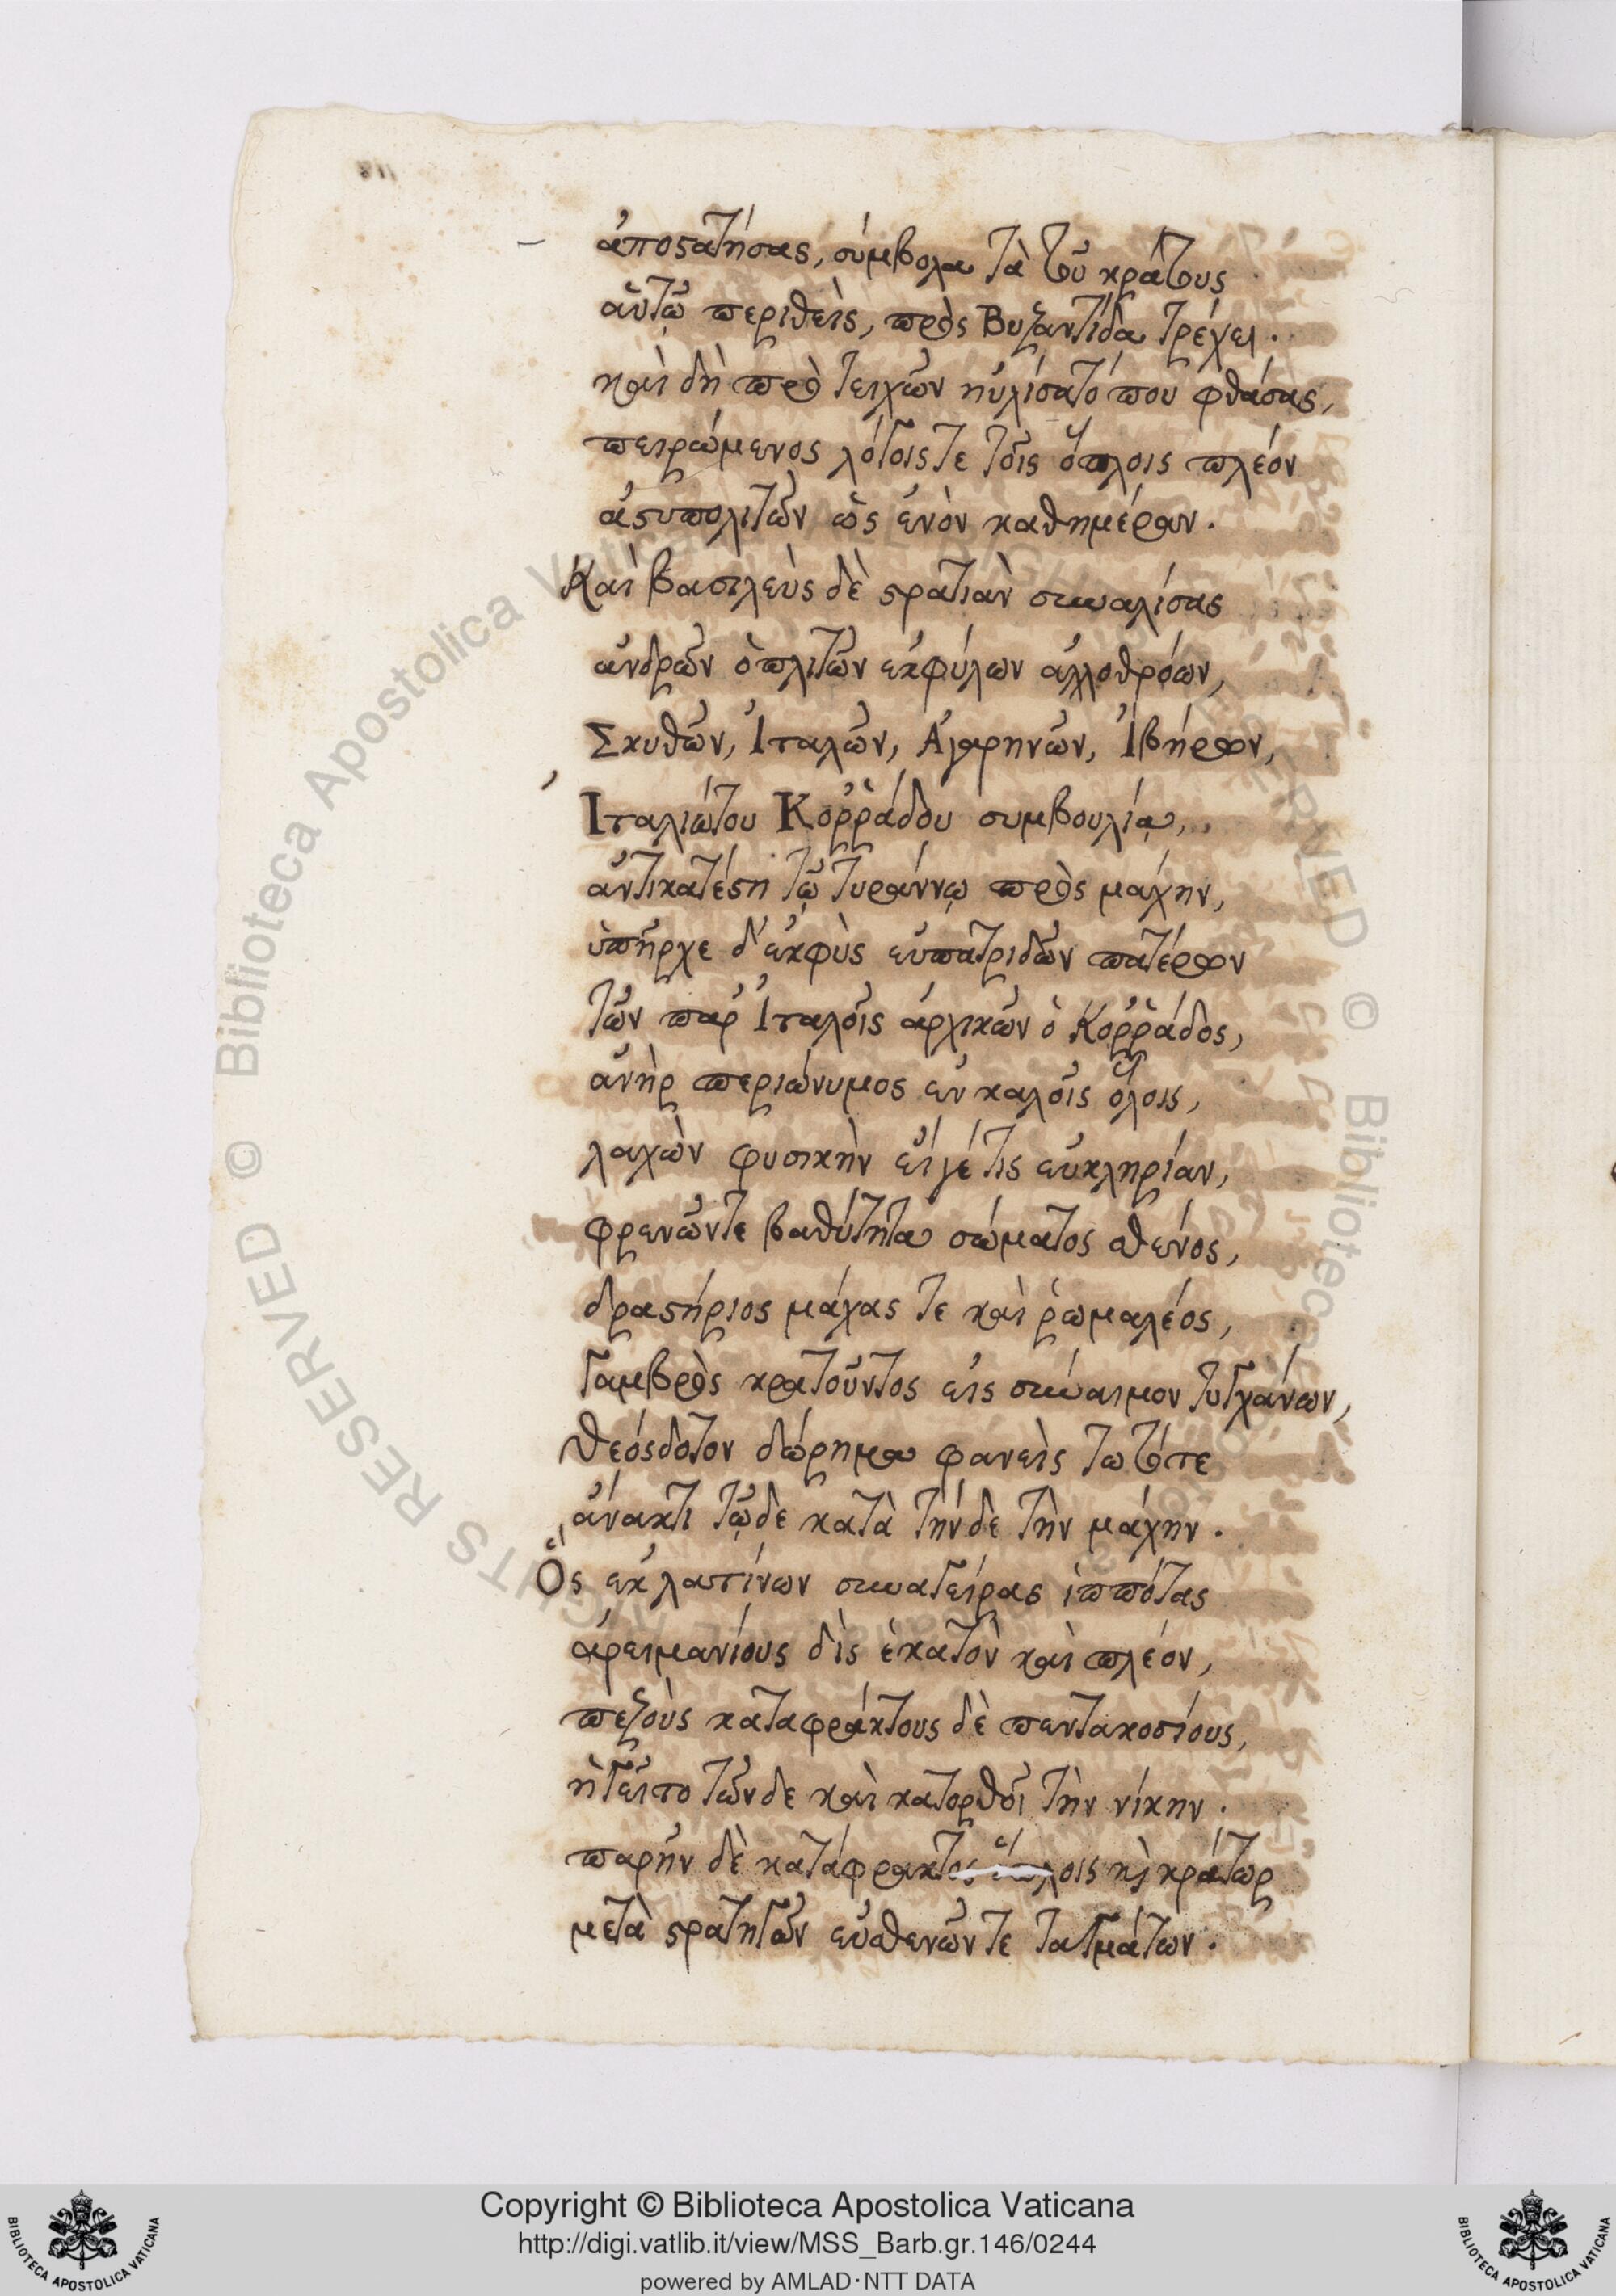 ἀποστατήσας, σύμβολα τὰ τοῦ κράτους
αὑτῷ περιθεὶς, πρὸς Βυζαντίδα τρέχει.
καὶ δὴ πρὸ τειχῶν ηὐλίσατό που φθάσας,
πειρώμενος λόγοις τε τοῖς ὅπλοις πλέον
ἀστυπολιτῶν ὡς ἐνὸν καθημέραν.
Καὶ βασιλεὺς δὲ στρατιὰν συναλίσας
ἀνδρῶν ὁπλιτῶν ἐκφύλων ἀλλοθρόων,
Σκυθῶν, Ἰταλῶν, Ἀγαρηνῶν, Ἰβήρων,
Ἰταλιώτου Κοῤῥάδου συμβουλίᾳ,
ἀντικατέστη τῷ τυράννῳ πρὸς μάχην,
ὑπῆρχε δ' ἐκφὺς εὐπατριδῶν πατέρων
τῶν παρ' Ἰταλοῖς ἀρχικῶν ὁ Κοῤῥάδος,
ἀνὴρ περιώνυμος ἐν καλοῖς ὅλοις,
λαχὼν φυσικὴν εἴ γέ τις εὐκληρίαν,
φρενῶν τε βαθύτητα σώματος σθένος,
δραστήριος μάχας τε καὶ ῥωμαλέος,
γαμβρὸς κρατοῦντος εἰς σύναιμον τυγχάνων,
θεόσδοτον δώρημα φανεὶς τω τότε
ἄνακτι τῷδε κατὰ τήνδε τὴν μάχην.
Ὃς ἐκ λατίνων συναγείρας ἱππότας
ἀρειμανίους δὶς ἑκατὸν καὶ πλέον,
πεζοὺς καταφράκτους δὲ πεντακοσίους,
ἡγεῖτο τῶνδε καὶ κατορθοῖ τὴν νίκην.
παρῆν δὲ κατάφρακτος ὅπλοις κὶ κράτωρ
μετὰ στρατηγῶν εὐσθενῶν τε ταγμάτων.
© Biblioteca Apostolica Vaticana
ALL RIGHTS RESERVED
Copyright © Biblioteca Apostolica Vaticana
http://digi.vatlib.it/view/MSS_Barb.gr.146/0244
powered by AMLAD·NTT DATA
BIBLIOTECA APOSTOLICA VATICANA
BIBLIOTECA APOSTOLICA VATICANA